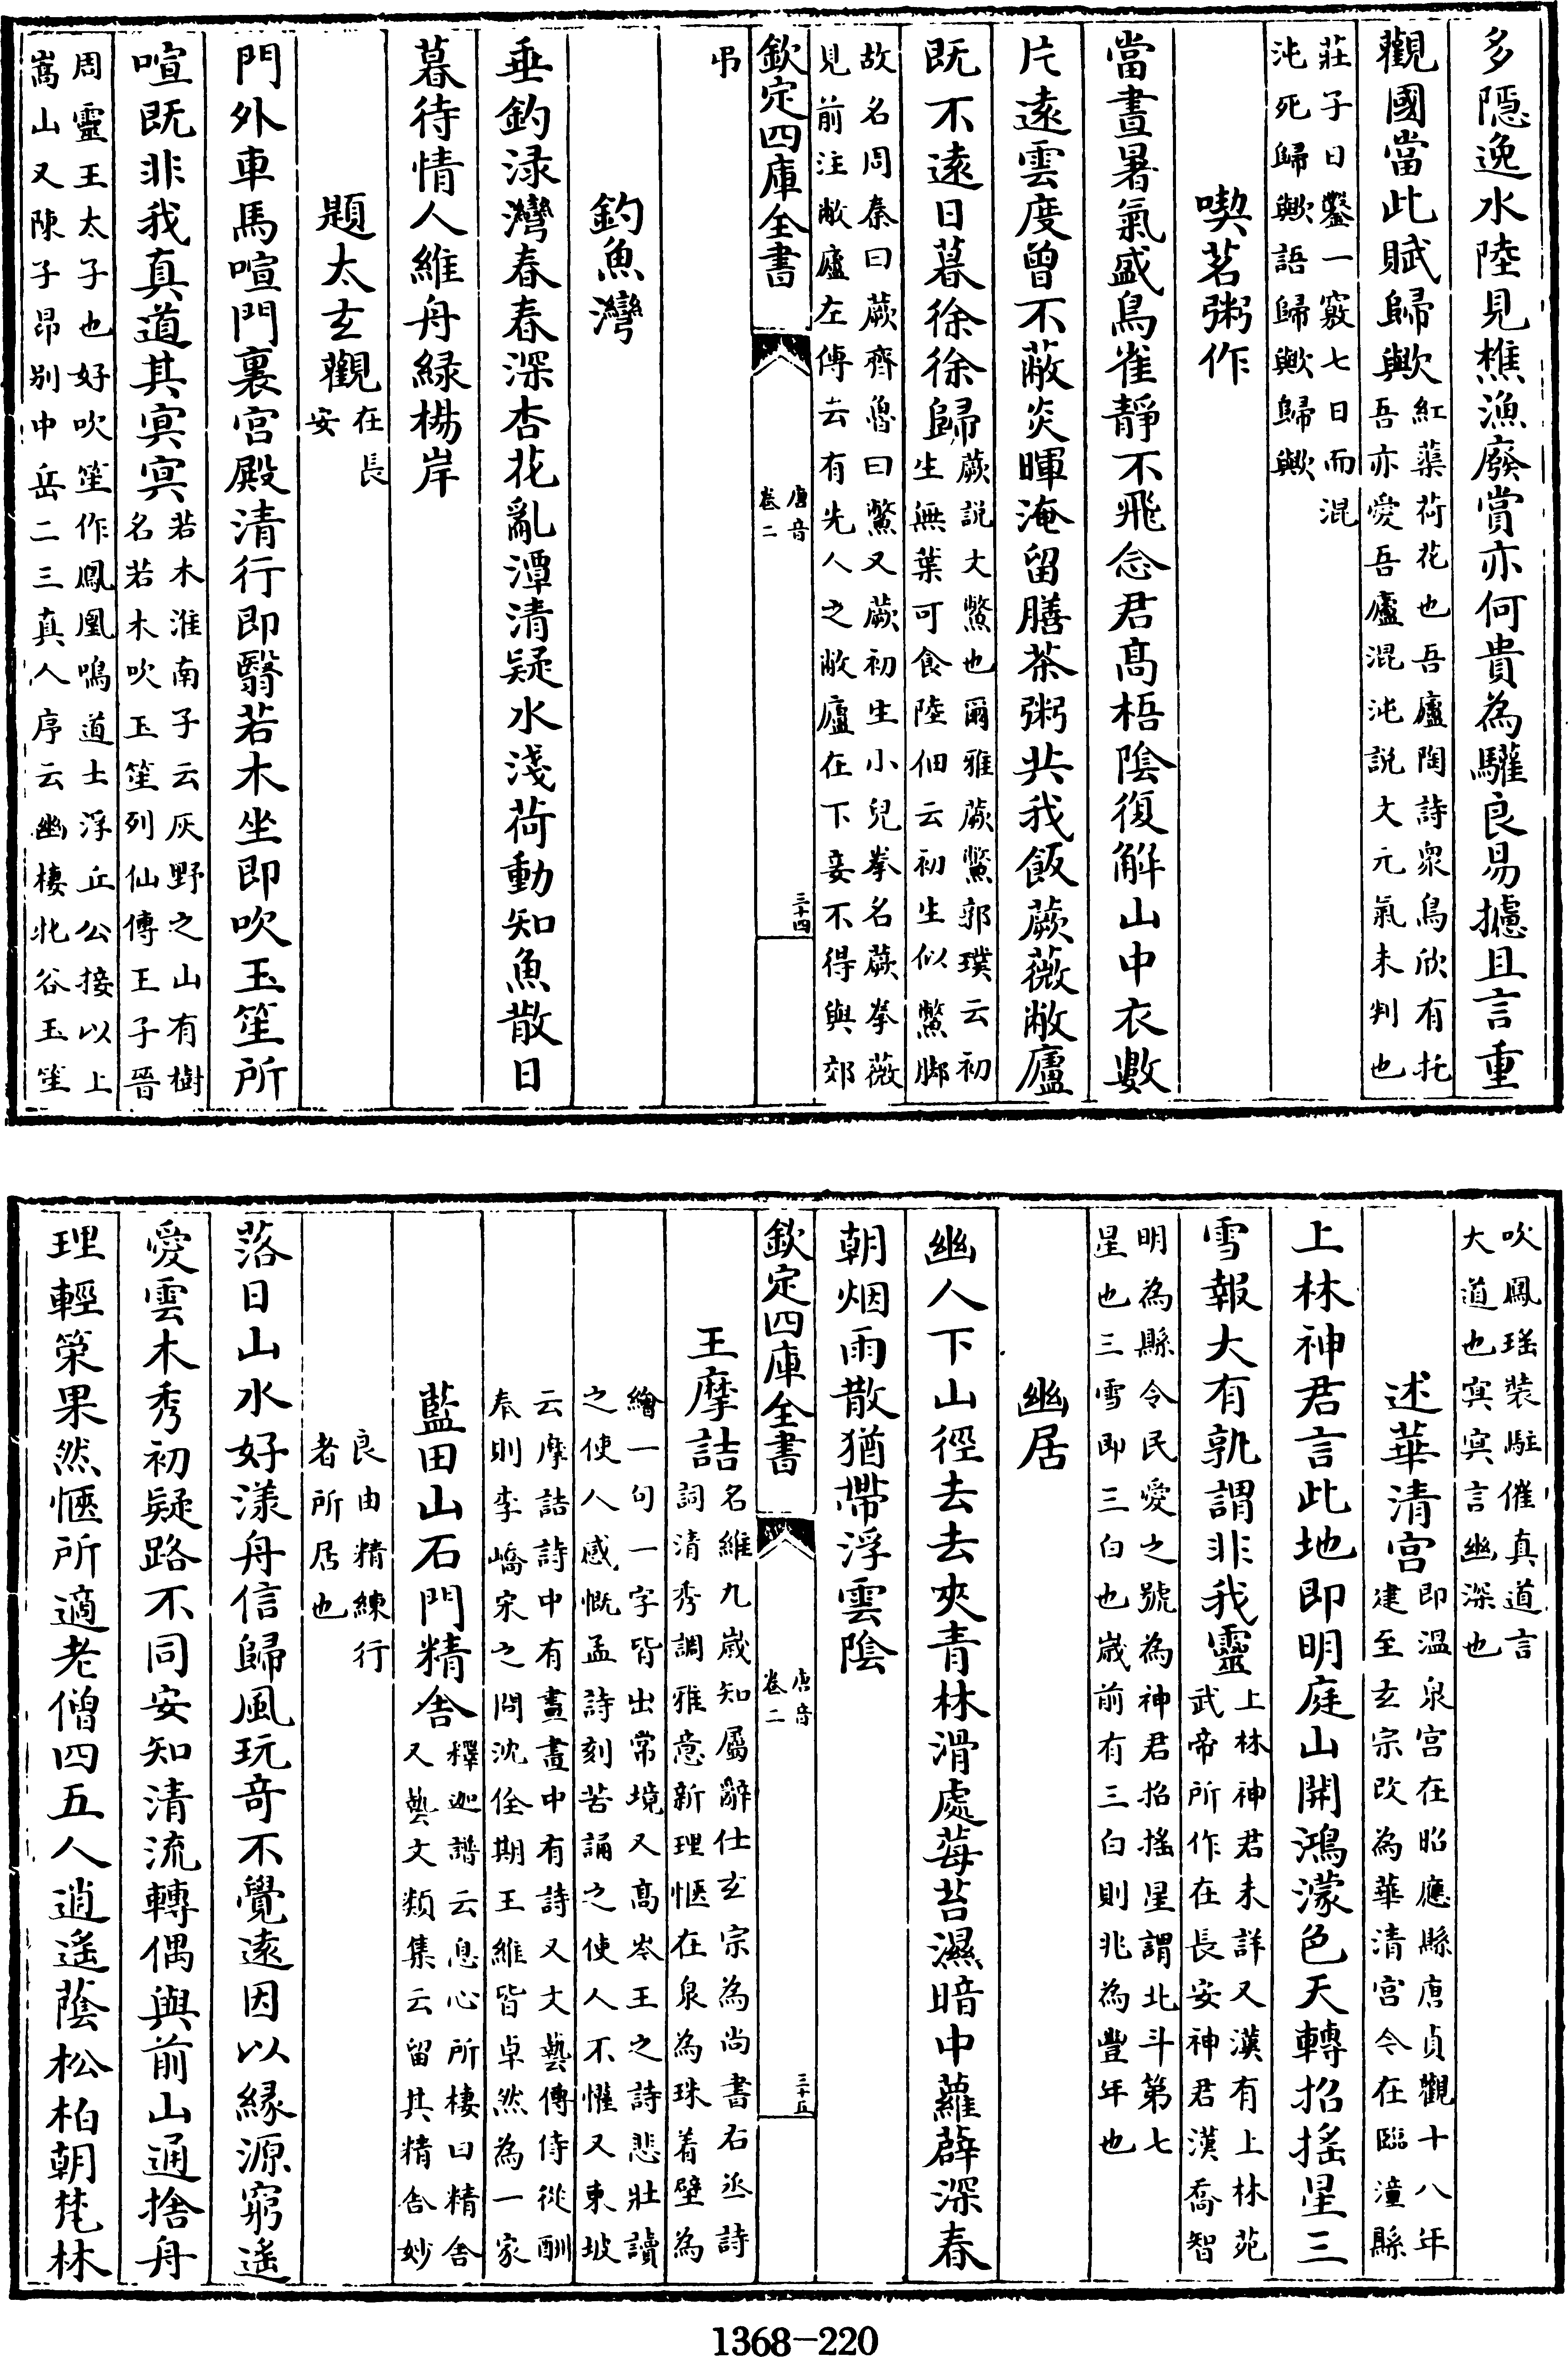 多隠逸水陸見樵漁廢賞亦何貴為驩良易攄且言重
觀國當此賦歸歟紅蕖荷花也吾廬陶詩衆鳥欣有托
吾亦愛吾廬混沌說文元氣未判也
莊子日鑿一竅七日而混
沌死歸歟語歸歟歸歟
喫茗粥作
當晝暑氣盛鳥雀靜不飛念君髙梧陰復解山中衣數
片遠雲度曾不蔽炎暉淹留膳茶粥共我飯蕨薇敝廬
既不遠日暮徐徐歸蕨説文虌也爾雅蕨虌郭璞云初
生無葉可食陸佃云初生似虌脚
故名周秦曰蕨齊魯曰虌又蕨初生小兒拳名蕨拳薇
見前注敝廬左傳云有先人之敝廬在下妾不得與郊
弔
欽定四庫全書
唐音
卷二
三十四
釣魚灣
垂釣淥灣春春深杏花亂潭清疑水淺荷動知魚散日
暮待情人維舟緑楊岸
題太玄觀在長
安
門外車馬喧門裏宮殿清行即翳若木坐即吹玉笙所
喧既非我真道其冥冥若木淮南子云灰野之山有樹
名若木吹玉笙列仙傳王子晉
周靈王太子也好吹笙作鳳凰鳴道士浮丘公接以上
嵩山又陳子昂别中岳二三真人序云幽棲北谷玉笙
吹鳳瑶裝駐催真道言
大道也冥冥言幽深也
述華清宫即溫泉宫在昭應縣唐貞觀十八年
建至玄宗改為華清宫令在臨潼縣
上林神君言此地即明庭山開鴻濛色天轉招搖星三
雪報大有孰謂非我靈上林神君未詳又漢有上林苑
武帝所作在長安神君漢喬智
明為縣令民愛之號為神君招搖星謂北斗第七
星也三雪即三白也嵗前有三白則兆為豐年也
幽居
幽人下山徑去去夾青林滑處莓苔濕暗中蘿薜深春
朝烟雨散猶帶浮雲陰
欽定四庫全書
唐音
卷二
三十五
王摩詰名維九嵗知屬辭仕玄宗為尚書右丞詩
詞清秀調雅意新理愜在泉為珠着壁為
繪一句一字皆出常境又髙岑王之詩悲壯讀
之使人感慨孟詩刻苦誦之使人不懽又東坡
云摩詰詩中有畫畫中有詩又文藝傳侍從酬
奉則李嶠宋之問沈佺期王維皆卓然為一家
藍田山石門精舍釋迦譜云息心所棲曰精舍
又藝文類集云留其精舍妙
良由精練行
者所居也
落日山水好漾舟信歸風玩奇不覺遠因以緣源窮遙
愛雲木秀初疑路不同安知清流轉偶與前山通捨舟
理輕策果然愜所適老僧四五人逍遙蔭松柏朝梵林
1368-220